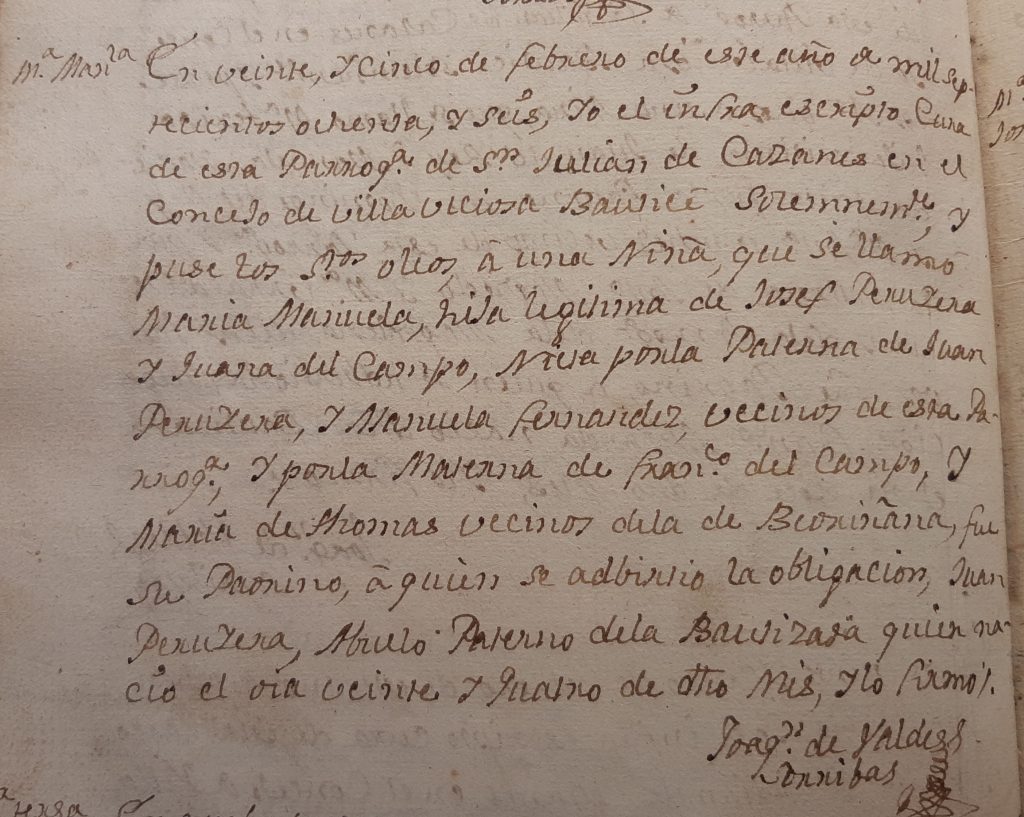 Mª Manla
En veinte, y cinco de febrero de este año de mil sep-
tecientos ochenta, y seis, Yo el infra escripto Cura
de esta Parroqª. de Sn. Julian de Cazanes en el
Concejo de villa viciosa Bauticé Solemnemte, y
puse los Stos oleos, à una Niña, que se llamó
Maria Manuela, hija legitima de Josef Peruyera
y Juana del Campo, Nieta por la Paterna de Juan
Peruyera, y Manuela Fernandez, vecinos de esta Pa-
rroqª, y por la Materna de Franco. del Campo, y
Maria de thomas vecinos dela de Bedriñana, fue
su Padrino, à quien se adbirtio la obligacion, Juan
Peruyera, Abuelo Paterno dela Bautizada quien na-
ció el dia veinte y quatro de dho Mes, y lo firmo.
Joaqn. de Valdes